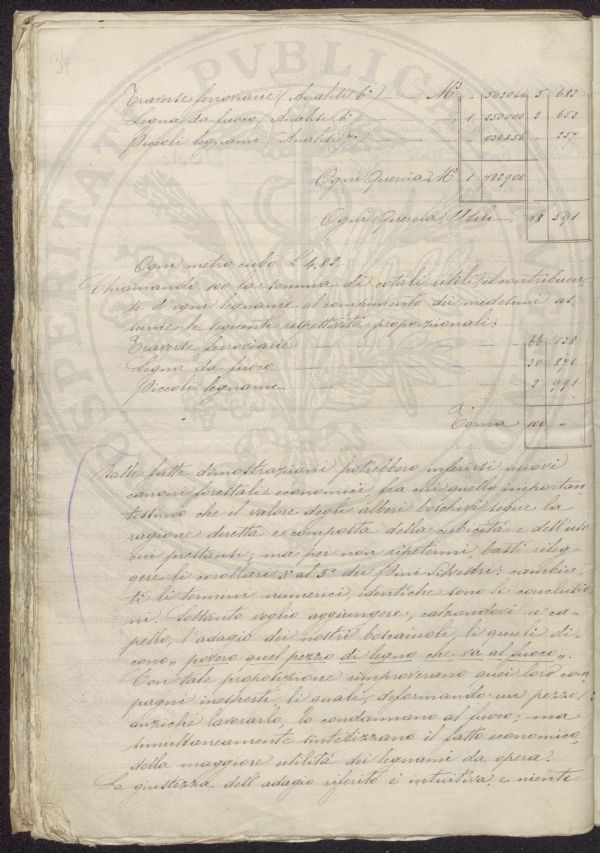 36
PVBLICA
Traverse ferroviarie (Analisi 6ª) — M³ - 502044 5 682
Legna da fuoco (Analisi 6ª) — 1 250000 2 652
Piccoli legnami (Analisi 7ª) — 030856 - 257
Ogni Quercia M³ 1 782900
Ogni Quercia Utili 8 591
Ogni metro cubo L 4,82.
Chiamando 100 la somma di cotali utili, il contribuen-
te d'ogni legname al compimento dei medesimi as-
sume le seguenti rispettività proporzionali:
Traverse ferroviarie — 66 138
Legna da fuoco — 30 871
Piccoli legnami — 2 991
Torna 100 "
Dalle fatte dimostrazioni potrebbero inferirsi nuovi
canoni forestali economici fra cui quello importan-
tissimo che il valore degli alberi boschivi segue la
ragione diretta e composta della cubicità e dell'uso
cui prestansi; ma per non ripetermi, basti rileg-
gere li corollari 3º al 5º dei Pini Silvestri: cambia-
ti li termini numerici, identiche sono le conclusio-
ni. Soltanto voglio aggiungere, calzandovi a ca-
pello, l'adagio dei nostri boscaiuoli, li quali di-
cono „ povero quel pezzo di legno che va al fuoco „.
Con tale proposizione improverano quei loro com-
pagni inesperti, li quali, deformando un pezzo,
anzichè lavorarlo, lo condannano al fuoco; ma
simultaneamente sintetizzano il fatto economico,
della maggiore utilità dei legnami da opera.
La giustezza dell'adagio riferito è intuitiva, e niente